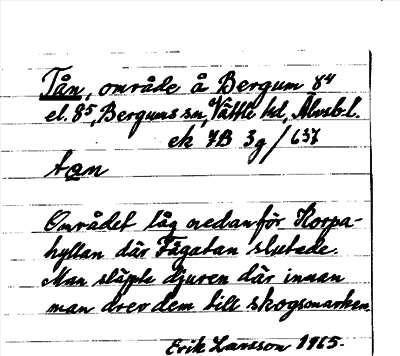 Tån, område å Bergum 84
el. 85, Bergums sn, Vättle hd, Älvsb.l.
ek 7B 3g/637
tån
Området låg nedanför Korpa-
hyllan där Fägatan slutade.
Man släppte djuren där innan
man drev dem till skogsmarken.
Erik Larsson 1965.